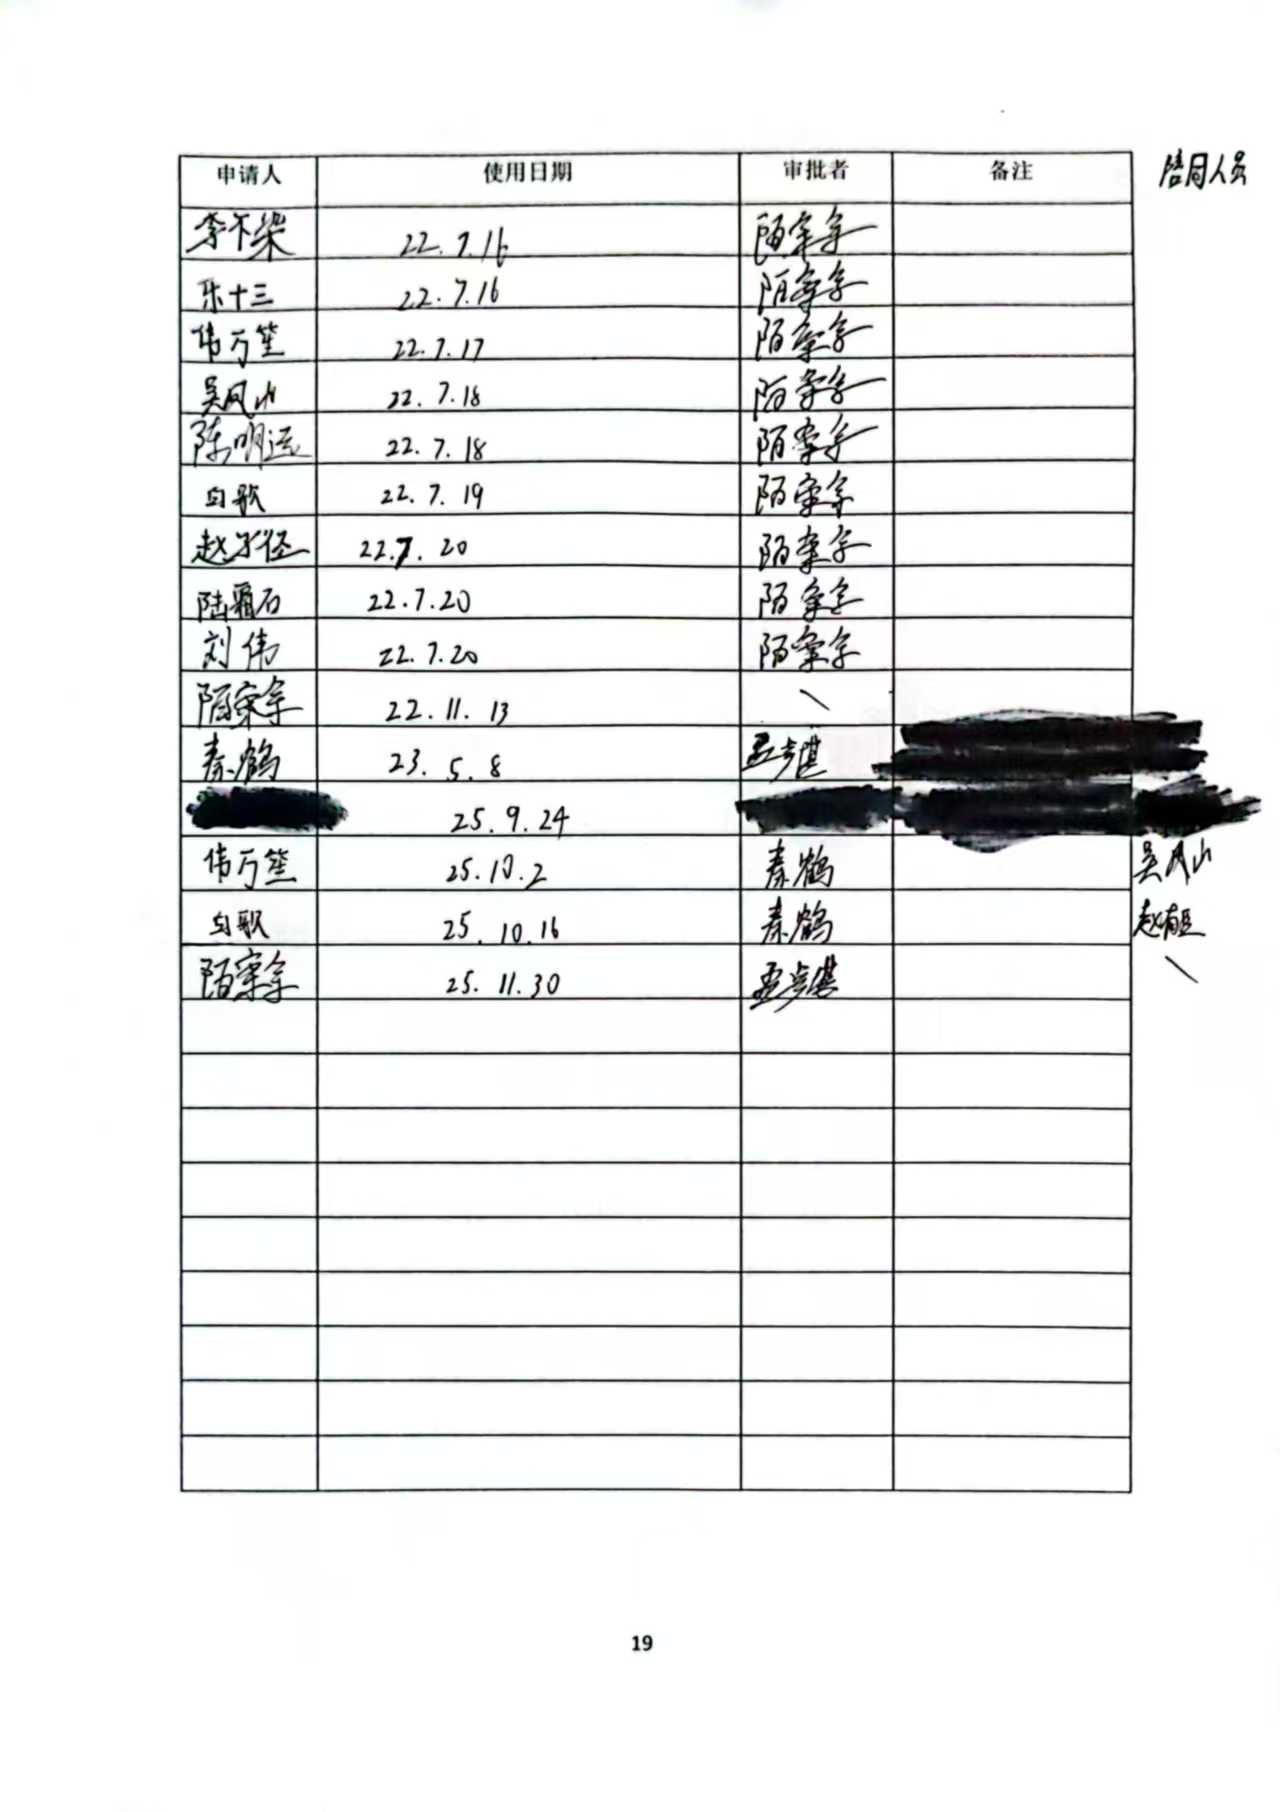 申请人 使用日期 审批者 备注 陪同人员
李不染 22.7.16 陌寀宇
乐十三 22.7.16 陌寀宇
伟万笙 22.7.17 陌寀宇
吴风山 22.7.18 陌寀宇
陈明远 22.7.18 陌寀宇
白歌 22.7.19 陌寀宇
赵子径 22.7.20 陌寀宇
陆霜石 22.7.20 陌寀宇
刘伟 22.7.20 陌寀宇
陌寀宇 22.11.13 \
秦鹤 23.5.8 孟步湛
25.9.24
伟万笙 25.10.2 秦鹤 吴风山
白歌 25.10.16 秦鹤 赵有臣
陌寀宇 25.11.30 孟步湛 \
19